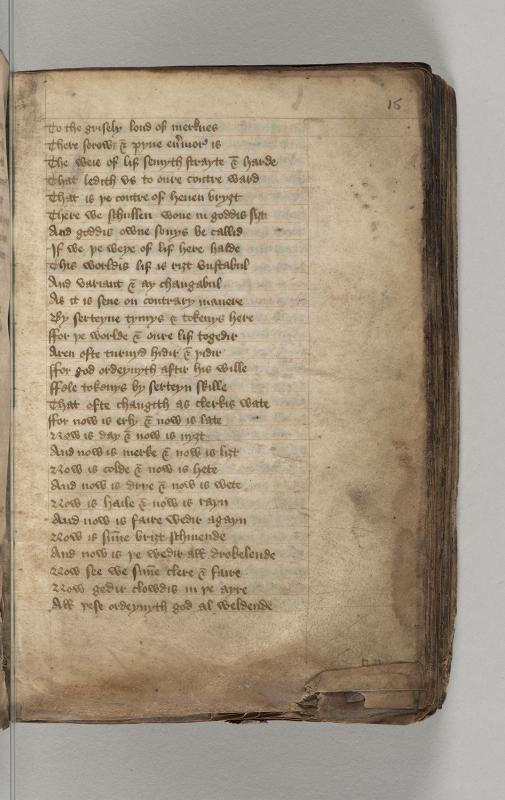 15
To the grisely lond of merknes
There sorow & pyne eu'mor is
The weie of lif semyth strayte & harde
That ledith vs to oure contre ward
That is þe contre of heuen bryȝt
There we schullen wone in goddis siȝt
And goddis owne sonys be callid
If we þe weye of lif here halde
This worldis lif is riȝt vnstabul
And variant & ay changabul
As it is sene on contrary manere
By serteyne tymys & tokenys here
ffor þe worlde & oure lif togedir
Aren ofte turnyd hidir & þidir
ffor god ordeynyth aftir his wille
ffele tokenys by serteyn skille
That ofte changith as clerkis wate
ffor now is erly & now is late
Now is day & now is nyȝt
And now is merke & now is liȝt
Now is colde & now is hete
And now is drye & now is wete
Now is haile & now is rayn
And now is faire wedir agayn
Now is su̅ne briȝt schinende
And now is þe wedir all drobelende
Now see we su̅ne clere & faire
Now gedir clowdis in þe ayre
All þese ordeynyth god al weldende